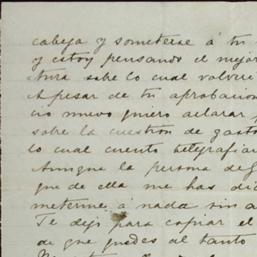 cabeza y someterse á tu
y estoy pensando el mejor
sobre lo cual volveré
Apesar de tu aprobacion
nuevo quiero aclarar
sobre la cuestion de gasto
lo cual cuento telegrafiar
Aunque la persona de
que de ella me has dic
meterme á nada sin a
Te dejo para copiar el
de que quedes al tanto